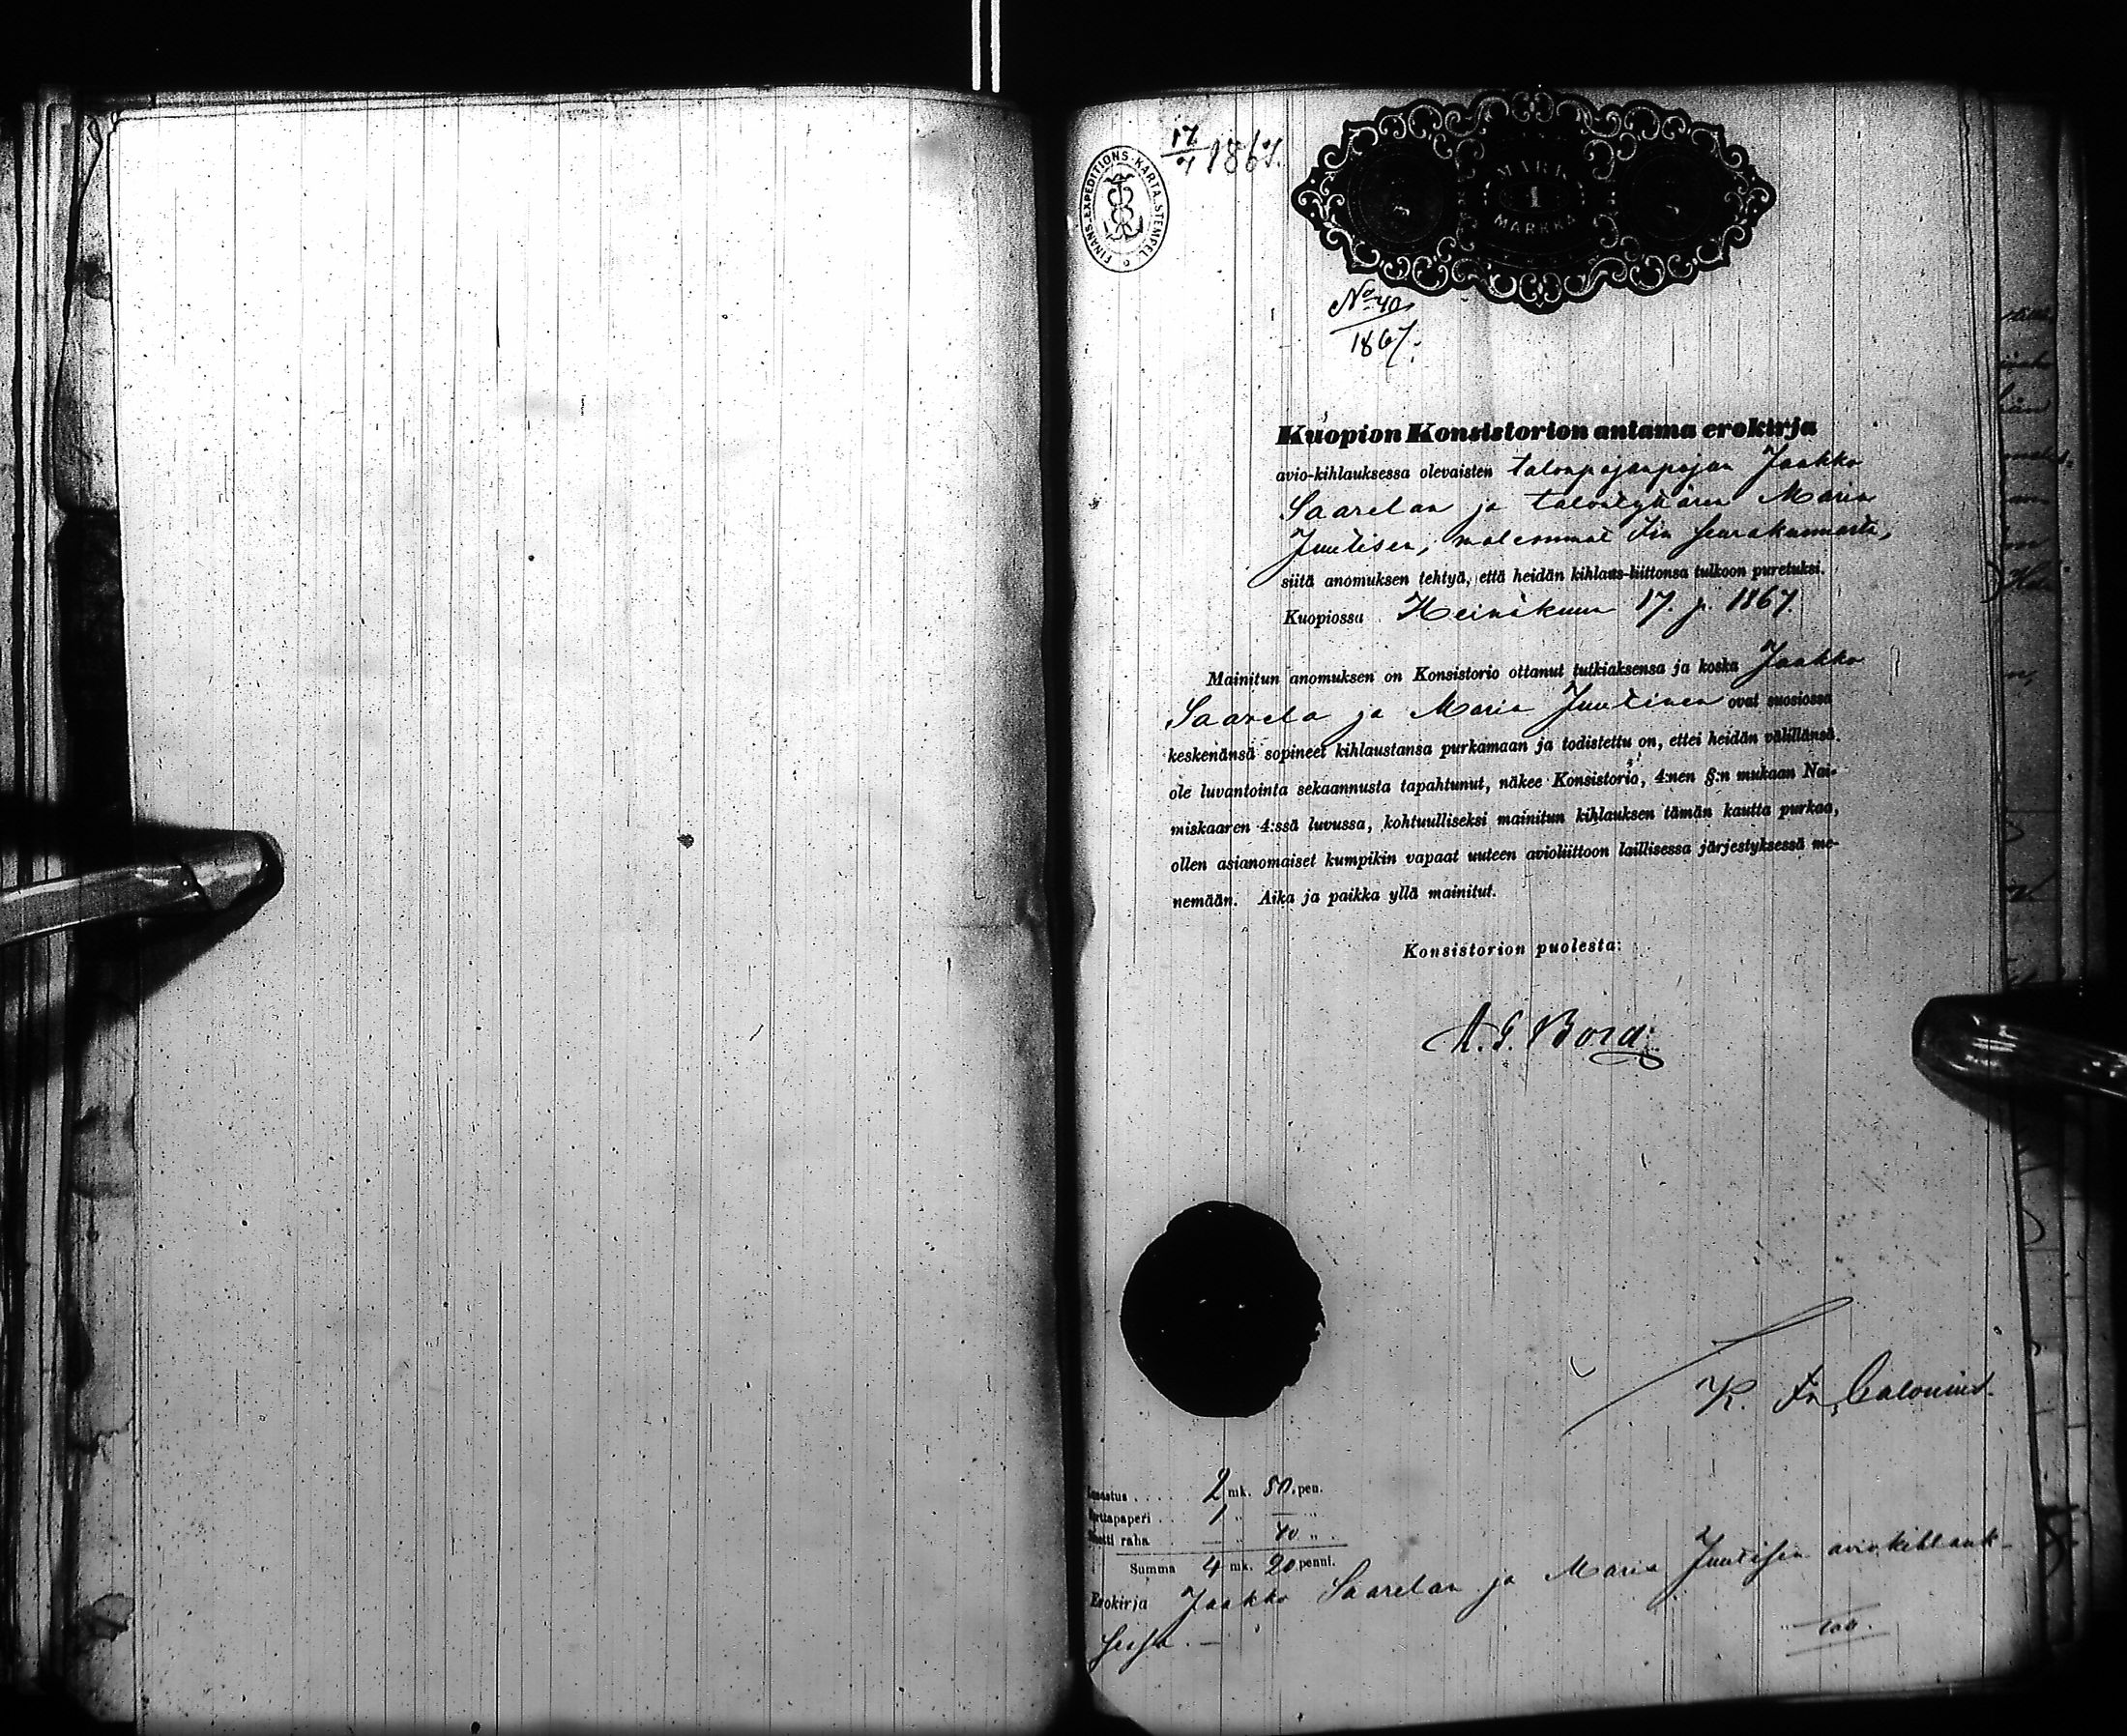 17/7 1867.
FINANS-EXPEDITIONS-KARTA STEMPEL
MARK
1
MARKKA
No 40
1867.
Kuopion Konsistorion antama erokirja
avio-kihlauksessa olevaisten talonpojanpojan Jaakko
Saarelan ja talontyttären Maria
Juutisen, molemmat Iin seurakunnasta,
siitä anomuksen tehtyä, että heidän kihlaus-liittonsa tulkoon puretuksi.
Kuopiossa Heinäkuun 17. p. 1867.
Mainitun anomuksen on Konsistorio ottanut tutkiaksensa ja koska Jaakko
Saarela ja Maria Juutinen ovat suosiossa
keskenänsä sopineet kihlaustansa purkamaan ja todistettu on, ettei heidän välillänsä
ole luvantointa sekaannusta tapahtunut, näkee Konsistorio, 4:nen §:n mukaan Nai-
miskaaren 4:ssä luvussa, kohtuulliseksi mainitun kihlauksen tämän kautta purkaa,
ollen asianomaiset kumpikin vapaat uuteen avioliittoon laillisessa järjestyksessä me-
nemään. Aika ja paikka yllä mainitut.
Konsistorion puolesta:
A. G. Borg
K. Fr. Calonius
Lunastus . . . . . 2 mk. 80. pen.
Karttapaperi . . . 1 „ — „
Vahti raha — „ 40 „
Summa 4 mk. 20 penni.
Erokirja Jaakko Saarelan ja Maria Juutisen aviokihlauk-
sesta. —